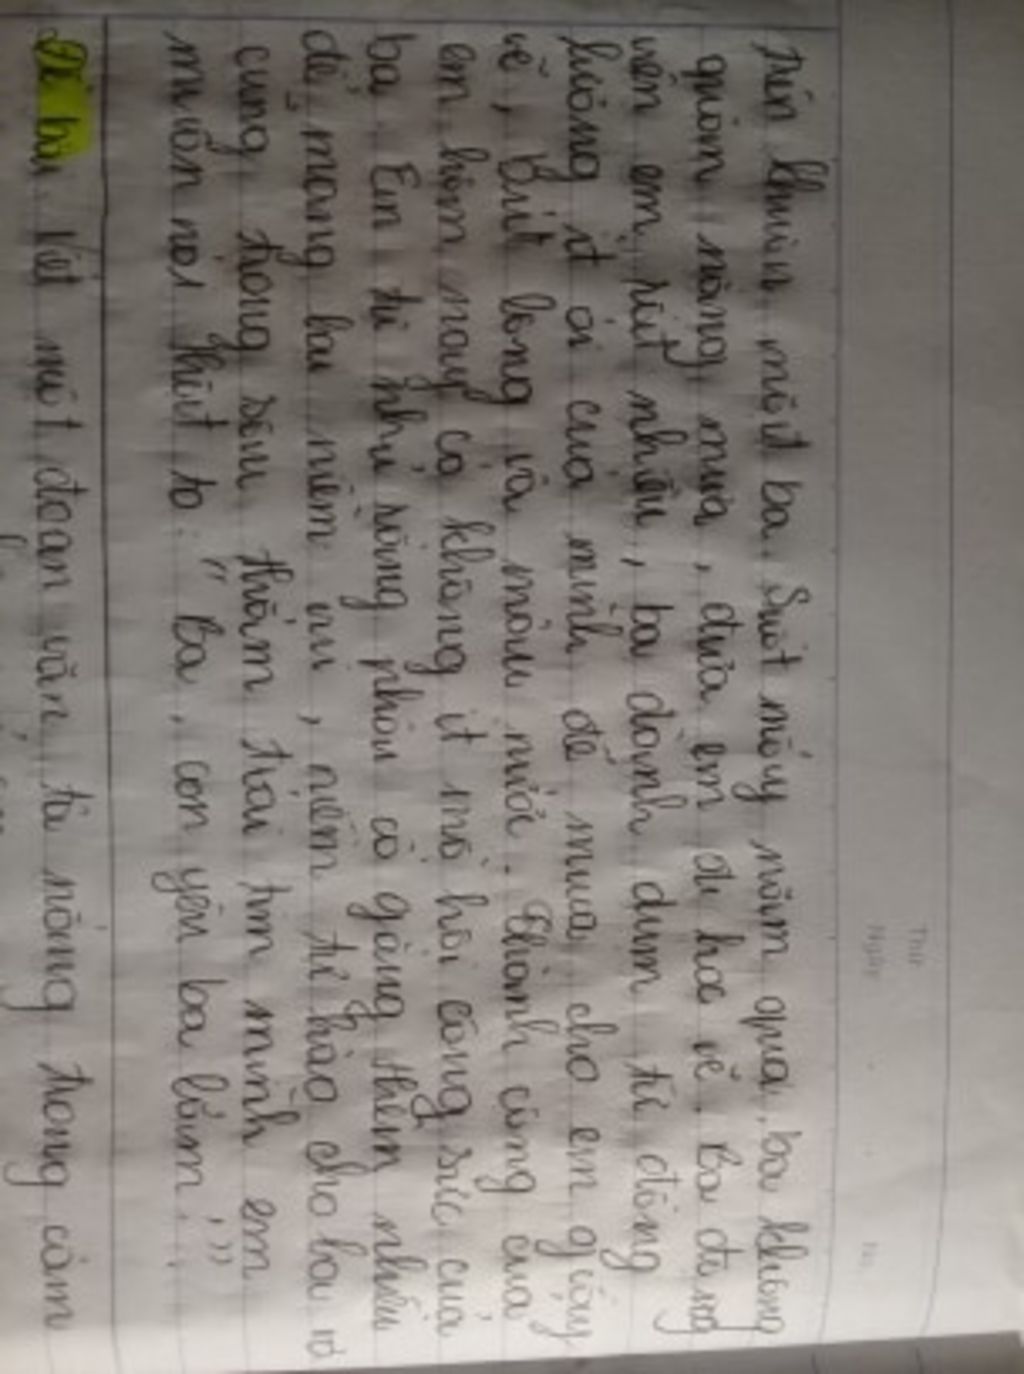 Thứ
Ngày
No.
trên khuôn mặt ba. Suốt mấy năm qua, ba không
quản nắng mưa, đưa em đi học vẽ. Ba động
viên em rất nhiều, ba dành dụm từ đồng
lương ít ỏi của mình để mua cho em giấy
vẽ, bút lông và màu nước. Thành công của
em hôm nay có không ít mồ hôi công sức của
ba. Em tự nhủ rằng phải cố gắng thêm nhiều
để mang lại niềm vui, niềm tự hào cho ba và
cũng trong sâu thẳm trái tim mình em
muốn nói thật to: "Ba, con yêu ba lắm!".
Đề bài. Viết một đoạn văn tả nắng trong cảm